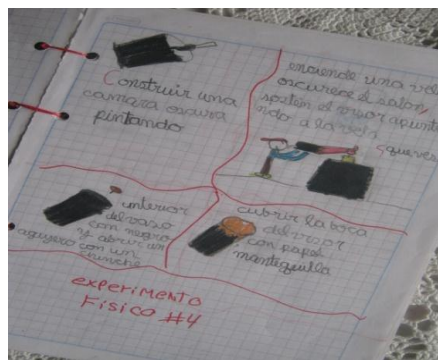 Construir una
camara oscura
pintando
enciende una vela
oscurece el salón
sostén el visor apunta
ndo a la vela
queves
interior
del vaso
con negro
y abrir un
agujero con un
chinche
cubrir la boca
del visor
con papel
mantequilla
experimento
Físico #4